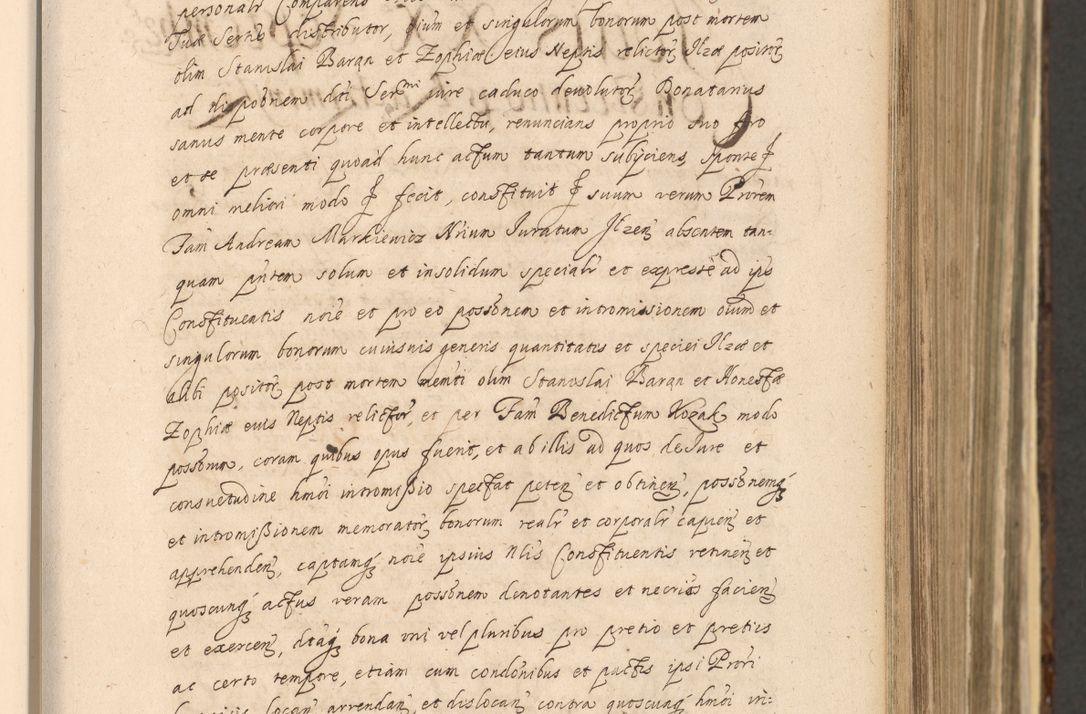 personalr Comparens
Tuæ Sertis distributor, oium et singulorum bonorum post mortem
olim Stanislai Baran et Zophiæ eius Neptis relictoꝝ Ilzæ positoꝝ
ad dispoōnem dīti Serᵐⁱ iure caduco devolutoꝝ Donatarius
sanus mente corpore et intellectu, renuncians proprio suo foro
et se præsenti quoad hunc actum tantum subijciens, sponte ꝸ
omni meliori modo ꝸ fecit, constituit ꝸ suum verum Prōrem
Fam̄ Andream Markiewicz Nrium Iuratum Ilzeñ absentem tan-
quam pn̄tem solum et insolidum specialr et expresse ad ips
Constituentis noīe et pro eo possōnem et intromissionem oium et
singulorum bonorum cuiusuis generis quantitatis et speciei Ilzæ et
alibi positoꝝ post mortem memti olim Stanislai Baran et Honestæ
Zophiæ eius Neptis relictoꝝ, et per Fam̄ Benedictum Kozak modo
possorum, coram quibus opus fuerit, et ab illis ad quos de Iure et
consuetudine hmōi intromißio spectat peteñ et obtineñ, possōnemqꝫ
et intromißionem memoratoꝝ bonorum realr et corporalr capieñ et
apprehendeñ, captamqꝫ noīe ipsius Nlis Constituentis retineñ et
quoscunqꝫ actus veram possōnem denotantes et necrios facieñ
et exerceñ, dtaqꝫ bona vni vel pluribus pro pretio et pretiis
ac certo tempore, etiam cum condōnibus et pactis ipsi Prōri
locañ arrendañ et dislocañ contra quoscunqꝫ hmōi in-